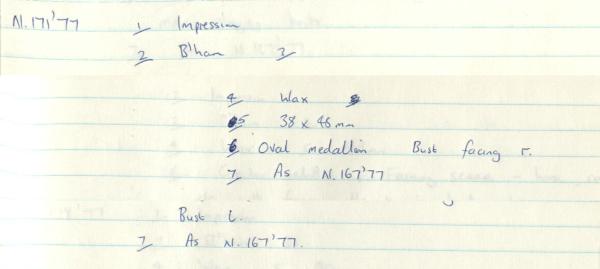 N.171'77 1 Impression
2 B'ham 3
4 Wax
5 38 x 48 mm
6 Oval medallion Bust facing r.
7 As N.167'77
Bust l.
7 As N.167'77.